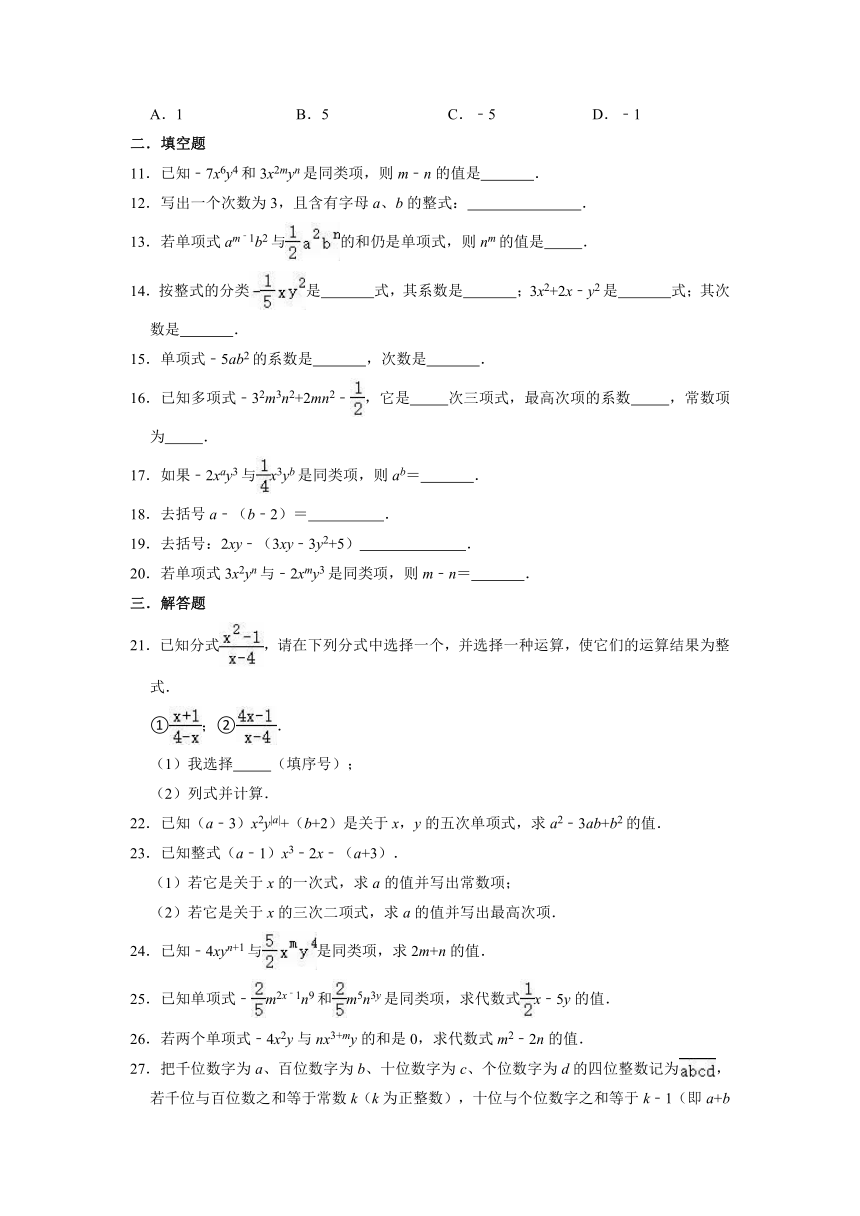 A．1 B．5 C．﹣5 D．﹣1
二．填空题
11．已知﹣7x⁶y⁴和 3x²ᵐyⁿ是同类项，则 m﹣n 的值是 ．
12．写出一个次数为 3，且含有字母 a、b 的整式： ．
13．若单项式 aᵐ⁻¹b²与\frac{1}{2}a²bⁿ的和仍是单项式，则 nᵐ的值是 ．
14．按整式的分类-\frac{1}{5}xy²是 式，其系数是 ；3x²+2x﹣y²是 式；其次
数是 ．
15．单项式﹣5ab²的系数是 ，次数是 ．
16．已知多项式﹣3²m³n²+2mn²﹣\frac{1}{2}，它是 次三项式，最高次项的系数 ，常数项
为 ．
17．如果﹣2xᵃy³与\frac{1}{4}x³yᵇ是同类项，则 aᵇ＝ ．
18．去括号 a﹣（b﹣2）＝ ．
19．去括号：2xy﹣（3xy﹣3y²+5） ．
20．若单项式 3x²yⁿ与﹣2xᵐy³是同类项，则 m﹣n＝ ．
三．解答题
21．已知分式\frac{x²-1}{x-4}，请在下列分式中选择一个，并选择一种运算，使它们的运算结果为整
式．
①\frac{x+1}{4-x}；②\frac{4x-1}{x-4}．
（1）我选择 （填序号）；
（2）列式并计算．
22．已知（a﹣3）x²y^{|a|}+（b+2）是关于 x，y 的五次单项式，求 a²﹣3ab+b²的值．
23．已知整式（a﹣1）x³﹣2x﹣（a+3）．
（1）若它是关于 x 的一次式，求 a 的值并写出常数项；
（2）若它是关于 x 的三次二项式，求 a 的值并写出最高次项．
24．已知﹣4xyⁿ⁺¹与\frac{5}{2}xᵐy⁴是同类项，求 2m+n 的值．
25．已知单项式﹣\frac{2}{5}m²ˣ⁻¹n⁹和\frac{2}{5}m⁵n³ʸ是同类项，求代数式\frac{1}{2}x﹣5y 的值．
26．若两个单项式﹣4x²y 与 nx³⁺ᵐy 的和是 0，求代数式 m²﹣2n 的值．
27．把千位数字为 a、百位数字为 b、十位数字为 c、个位数字为 d 的四位整数记为\overline{abcd}，
若千位与百位数之和等于常数 k（k 为正整数），十位与个位数字之和等于 k﹣1（即 a+b